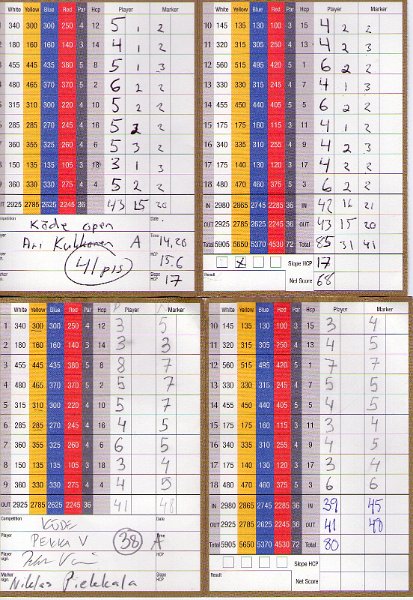 White Yellow Blue Red Par Hcp Player Marker
340 300 300 250 4 12 5 1 2
180 160 160 140 3 14 4 1 2
455 445 380 380 4 8 5 1 3
480 465 370 370 5 2 6 2 2
315 310 270 270 4 10 5 2 2
285 285 270 245 4 16 5 2 2
360 355 325 260 4 6 5 3 2
150 135 135 105 3 18 3 1 3
360 330 330 275 4 4 5 2 2
2925 2785 2545 2245 36 43 15 20
Köde open
Ari Kukkonen A 14,20
41 pts 15.6
17
White Yellow Blue Red Par Hcp Player Marker
10 145 135 130 100 3 15 4 2 2
11 330 315 305 250 4 13 4 2 3
12 455 445 440 385 5 1 6 2 2
13 340 330 320 245 4 7 4 1 3
14 555 450 420 405 5 5 6 2 2
15 175 160 160 115 3 11 4 1 2
16 340 320 315 255 4 9 4 2 3
17 180 170 125 120 3 17 4 2 2
18 460 455 450 410 5 3 6 2 2
IN 2980 2865 2745 2285 36 42 16 21
OUT 2925 2785 2625 2245 36 43 15 20
Total 5905 5650 5370 4530 72 85 31 41
Slope HCP 17
Result Net Score 68
White Yellow Blue Red Par Hcp Player Marker
1 340 300 300 250 4 12 3 5
2 180 160 160 140 3 14 3 3
3 455 445 380 380 5 8 8 7
4 480 465 370 370 5 2 5 7
5 315 310 270 220 4 10 5 7
6 285 285 270 245 4 16 4 5
7 360 355 325 260 4 6 6 5
8 150 135 135 105 3 18 3 4
9 360 330 330 275 4 4 4 5
OUT 2925 2785 2625 2245 36 41 48
Competition KÖDE
Player PEKKA V 38 A
Player sign.
Marker sign. Niklas Piekkala
White Yellow Blue Red Par Hcp Player Marker
10 145 135 130 100 3 15 3 4
11 340 315 305 250 4 13 4 5
12 455 445 440 385 5 1 7 7
13 340 330 320 245 4 7 5 5
14 555 495 420 405 5 5 4 5
15 175 160 160 115 3 11 3 4
16 340 320 315 255 4 9 4 5
17 180 170 125 120 3 17 3 4
18 460 455 450 410 5 3 6 6
IN 2980 2865 2745 2285 36 39 45
OUT 2925 2785 2625 2245 36 41 48
Total 5905 5650 5370 4530 72 80
Slope HCP
Result Net Score